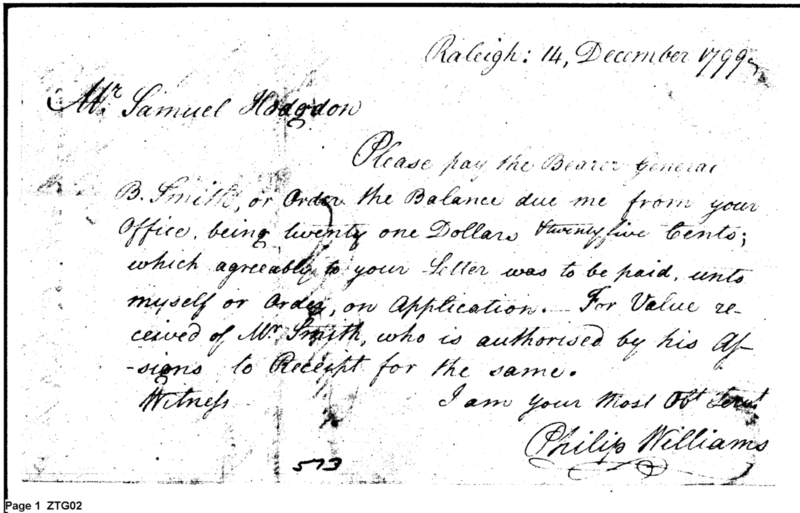 Raleigh: 14, December 1799
Mr. Samuel Hodgdon
Please pay the Bearer General
B. Smith, or Order the Balance due me from your
Office, being twenty one Dollars & twenty five Cents;
which agreeably to your Letter was to be paid, unto
myself or Order, on Application. For Value re-
ceived of Mr. Smith, who is authorised by his As-
-signs to Receipt for the same.
Witness I am your Most Obt Servt
Philip Williams
573
Page 1 ZTG02